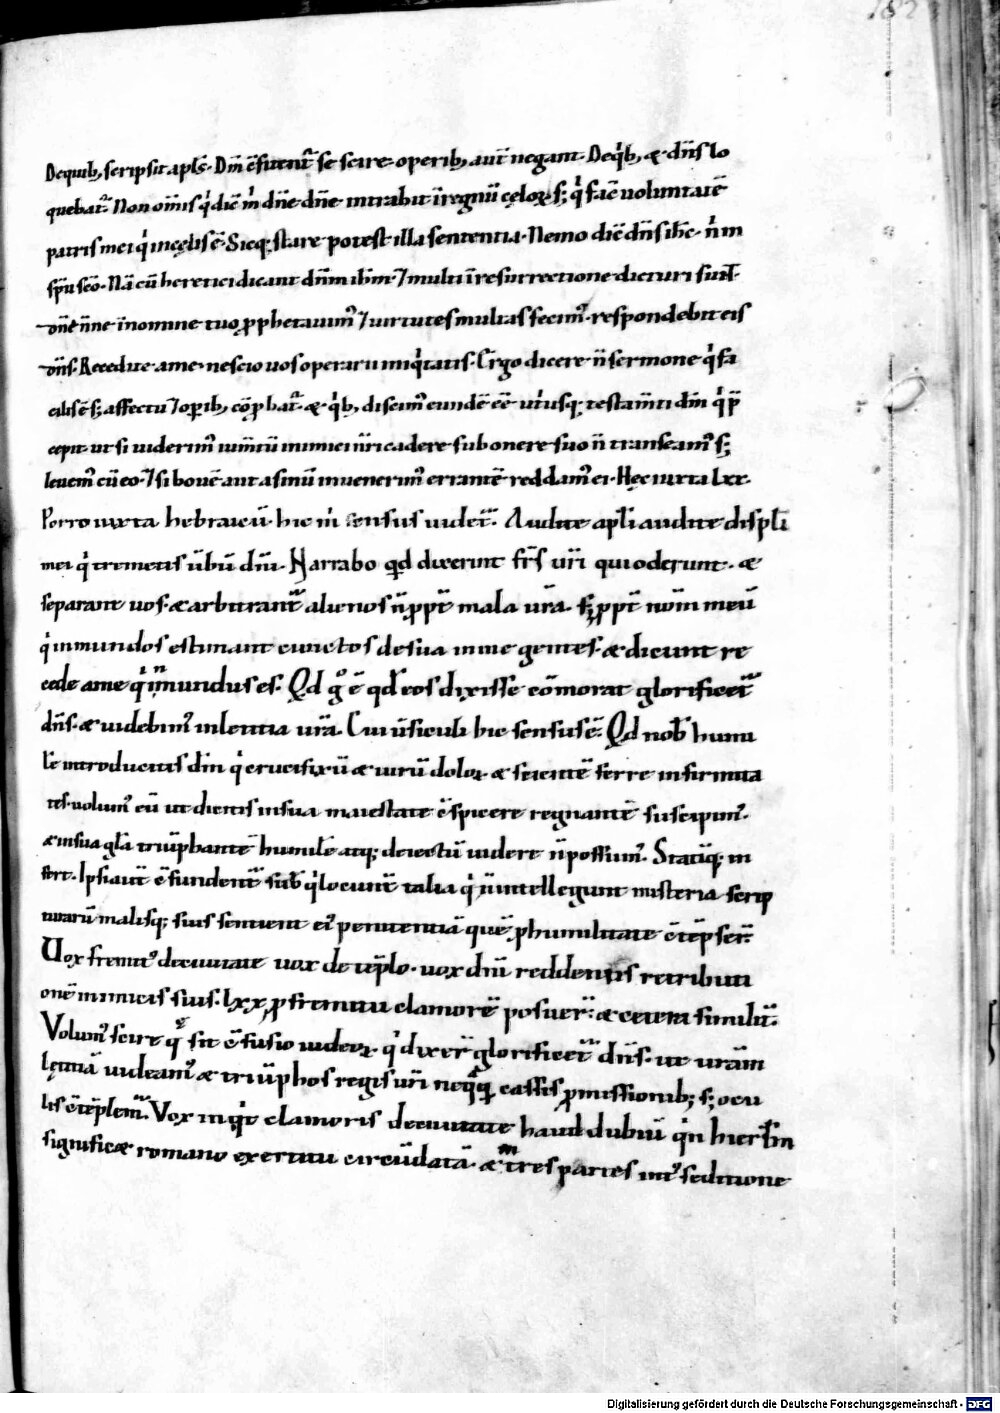 182
Dequib; scripsit apl̄s. Dm̄ c̄fitent᷑ se scire. operib; aut̄ negant. Deq̇b; & dn̄s lo
quebat᷑. Non om̄is q̇ dic̄ ṁ dn̄e dn̄e intrabit īregnū cęloꝝ. s; q̇ fac̄ voluntatē
patris mei q̇ incęlis ē. Sicq; stare potest illa sententia. Nemo dic̄ dn̄s ih̄c. n̄ in
sp̄u sc̄o. Nā cū heretici dicant dn̄m ih̄m. ⁊ multi īresurrectione dicturi sint.
dn̄e n̄ne īnomine tuo ꝓphetauim᷒ ⁊ uirtutes multas fecim᷒. respondebit eis
dn̄s. Recedite ame. nescio uos operarii iniq̇tatis. Ergo dicere n̄ sermone q̇ fa
cilis ē s; affectu ⁊ oꝑib; cōꝓbat᷑. & q̇b; discim᷒ eundē eē utiusq; testam̄ti dm̄ q̇ p̄
cepit ut si uiderim᷒ ium̄tū inimici n̄ri cadere sub onere suo n̄ transeam᷒ s;
leuem᷒ cū eo. ⁊ si bouē aut asinū inuenerim᷒ errantē reddam᷒ ei. Hęc iuxta lxx.
Porro iuxta hebraicū. hic ṁ sensus uidet᷑. Audite apl̄i audite discipl̄i
mei q̇ tremetis ūbū dn̄i. Narrabo qd dixerunt fr̄s ur̄i qui oderunt. &
separant uos. & arbitrant᷑ alienos n̄ ꝓpt̄ mala ur̄a. s; ꝓpt̄ nom̄ meū
q̇ inmundos estimant cunctos desua inme gentes. & dicunt re
cede ame q̇ inmundus es. Qd gͦ ē qd̄ eos dixisse cōmorat glorificet᷑
dn̄s. & uidebim᷒ inlętitia ur̄a. Cui ūsiculi hic sensus ē. Qd nob̄ humi
lē introducitis dm̄ q̇ crucifixū & uirū doloꝝ & scientē ferre infirmita
tes. volum᷒ eū ut dicitis insua maiestate c̄spicere regnantē suscipim᷒.
& insua gl̄a triūphantē humilē atq; deiectū uidere n̄ possum᷒. Statiq; in
fert. Ipsi aut̄ c̄fundent᷑ sub q̇ locunt᷑ talia q̇ n̄ intellegunt misteria scrip
turarū malisq; suis sentient ei᷒ penitentiā quē ꝑhumilitate c̄tēpser̄.
Vox fremit᷒ decivitate vox de tēplo. vox dn̄i reddentis retributi
onē inimicis suis. lxx ꝓ fremitu clamorē posuer̄. & cetera similit᷑.
Volum᷒ scire q̄ sit c̄fusio iudeoꝝ. q̇ dixer̄ glorificet᷑ dn̄s. ut uram
lętitiā uideam᷒ & triūphos regis ur̄i neq̄q̄ cassis ꝓmissionib; s; ocu
lis c̄tēplem᷑. Vox inqt clamoris decivitate haud dubiū q̇n hierl̄m
significæ romano exercitu circūdatā. & intres partes int᷒ seditione
Digitalisierung gefördert durch die Deutsche Forschungsgemeinschaft - DFG